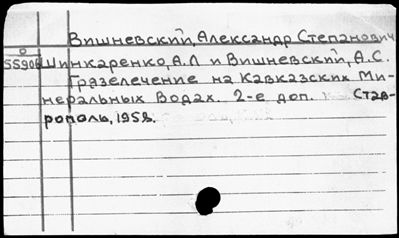 Вишневский, Александр Степанович
О
55906
Шинкаренко, А.Л и Вишневский, А.С.
Грязелечение на Кавказских Ми-
неральных Водах. 2-е доп. Став-
рополь, 1958.